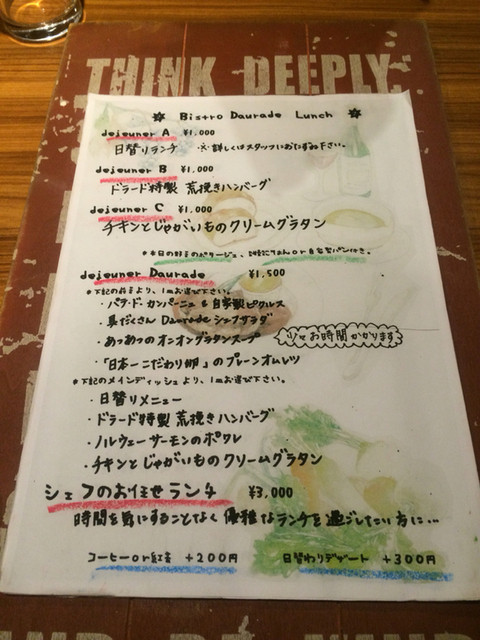 THINK DEEPLY.
✽ Bistro Daurade Lunch ✽
dejeuner A ¥1,000
日替りランチ ※詳しくはスタッフにおたずね下さい。
dejeuner B ¥1,000
ドラード特製 荒挽きハンバーグ
dejeuner C ¥1,000
チキンとじゃがいものクリームグラタン
dejeuner Daurade ¥1,500
*下記の前菜より、1皿お選び下さい。
・パテ・ド・カンパーニュと自家製ピクルス
・具だくさん Daurade シェフサラダ
・あつあつのオニオングラタンスープ
・「日本一こだわり卵」のプレーンオムレツ
少々お時間かかります
*下記のメインディッシュより、1皿お選び下さい。
・日替りメニュー
・ドラード特製 荒挽きハンバーグ
・ノルウェーサーモンのポワレ
・チキンとじゃがいものクリームグラタン
シェフのお任せランチ ¥3,000
時間を気にすることなく優雅なランチを過ごしたい方に…
コーヒーor紅茶 +200円
日替わりデザート +300円